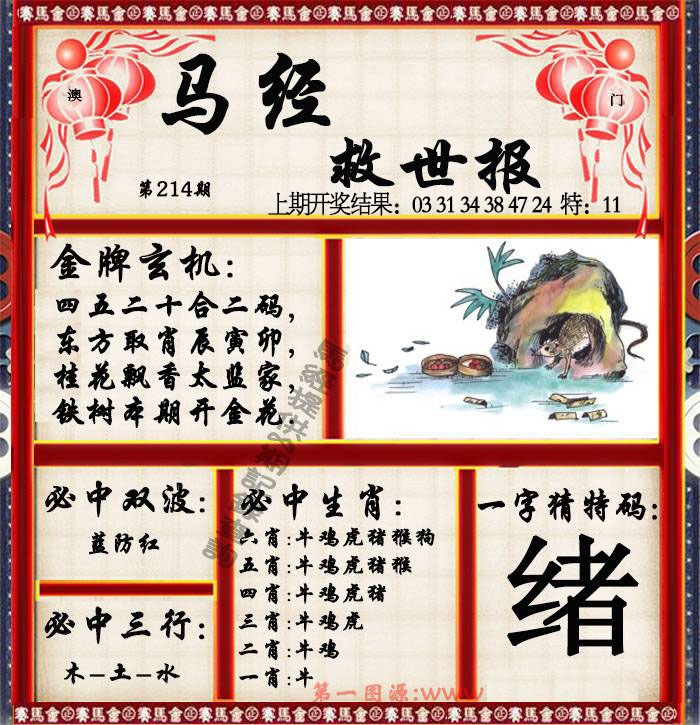 正金會馬賽正金會馬賽正金會馬賽正金會馬賽正金會馬賽正金會馬賽
澳
门
马经
救世报
第214期
上期开奖结果：03 31 34 38 47 24 特：11
金牌玄机：
四五二十合二码，
东方取肖辰寅卯，
桂花飘香太监家，
铁树本期开金花．
必中双波：
蓝防红
必中三行：
木–土–水
必中生肖：
六肖:牛鸡虎猪猴狗
五肖:牛鸡虎猪猴
四肖:牛鸡虎猪
三肖:牛鸡虎
二肖:牛鸡
一肖:牛
一字猜特码：
绪
第一图源:www